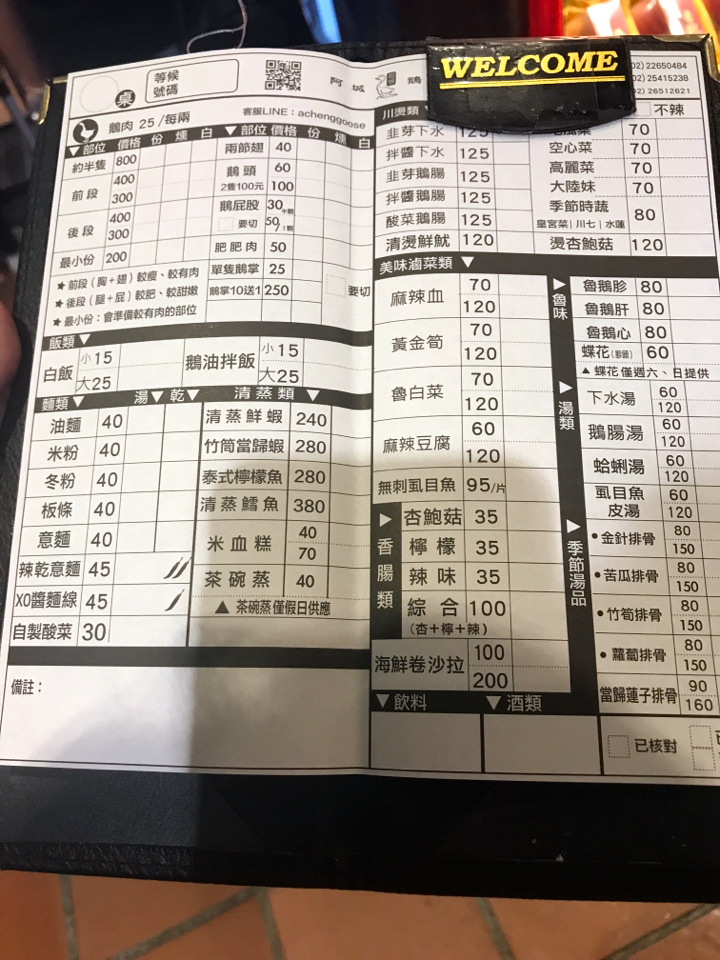 桌
等候
號碼
阿城 鵝
WELCOME
02) 22650484
02) 25415238
02) 26512621
鵝肉 25 /每兩
客服LINE：achenggoose
▼部位 價格 份 燻 白
約半隻 800
前段 400
300
後段 400
300
最小份 200
★ 前段（胸＋翅）較瘦、較有肉
★ 後段（腿＋屁）較肥、較甜嫩
★ 最小份：會準備較有肉的部位
▼部位 價格 份 燻 白
兩節翅 40
鵝頭 60
2隻100元 100
鵝屁股 30
要切 50
肥肥肉 50
單隻鵝掌 25
鵝掌10送1 250 要切
飯類▼
白飯 小15
大25
鵝油拌飯 小15
大25
麵類▼ 湯▼ 乾▼
油麵 40
米粉 40
冬粉 40
板條 40
意麵 40
辣乾意麵 45
XO醬麵線 45
自製酸菜 30
清蒸類▼
清蒸鮮蝦 240
竹筒當歸蝦 280
泰式檸檬魚 280
清蒸鱈魚 380
米血糕 40
70
茶碗蒸 40
▲ 茶碗蒸僅假日供應
備註：
川燙類
韭芽下水 125
拌醬下水 125
韭芽鵝腸 125
拌醬鵝腸 125
酸菜鵝腸 125
清燙鮮魷 120
不辣
70
空心菜 70
高麗菜 70
大陸妹 70
季節時蔬 80
皇宮菜｜川七｜水蓮
燙杏鮑菇 120
美味滷菜類▼
麻辣血 70
120
黃金筍 70
120
魯白菜 70
120
麻辣豆腐 60
120
無刺虱目魚 95/片
▶香腸類
杏鮑菇 35
檸檬 35
辣味 35
綜合 100
（杏＋檸＋辣）
海鮮卷沙拉 100
200
▼飲料
▼酒類
▶魯味
魯鵝胗 80
魯鵝肝 80
魯鵝心 80
蝶花 60
▲ 蝶花僅週六、日提供
▶湯類
下水湯 60
120
鵝腸湯 60
120
蛤蜊湯 60
120
虱目魚皮湯 60
120
▶季節湯品
●金針排骨 80
150
●苦瓜排骨 80
150
●竹筍排骨 80
150
●蘿蔔排骨 80
150
當歸蓮子排骨 90
160
已核對